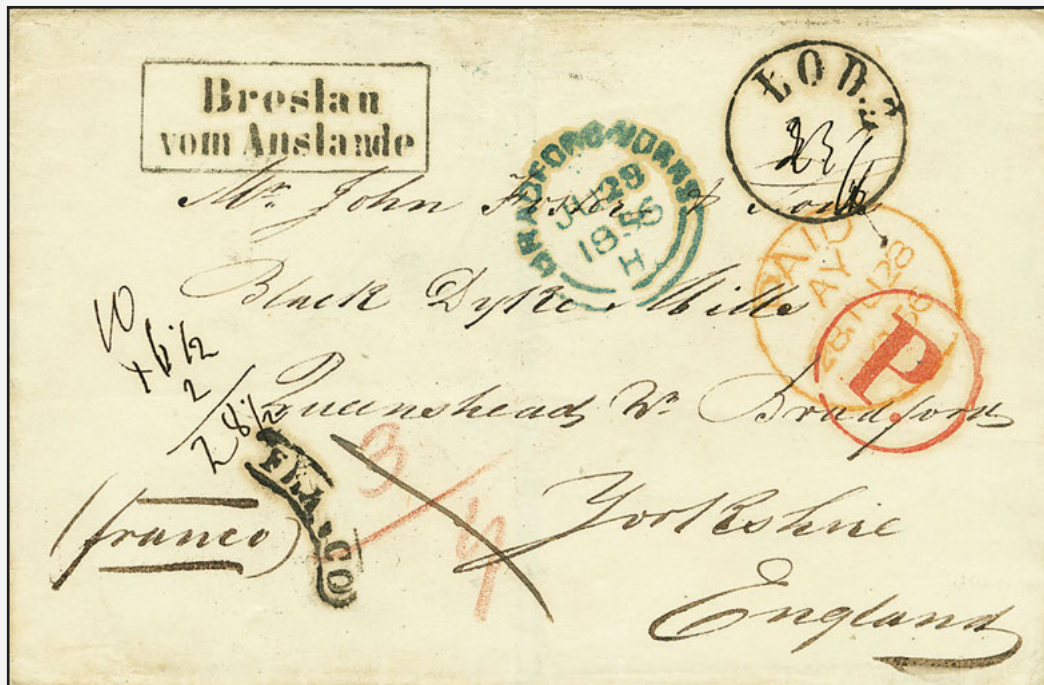 Breslau
vom Auslande
ŁODŹ
BRADFORD-YORKS
29
1856
H
PAID
28
P.
Mr. John Foster & Son
Black Dyke Mills
Queenshead, Nr. Bradford
Yorkshire
England
(franco)
FRANCO
10
2
28 1/2
3/